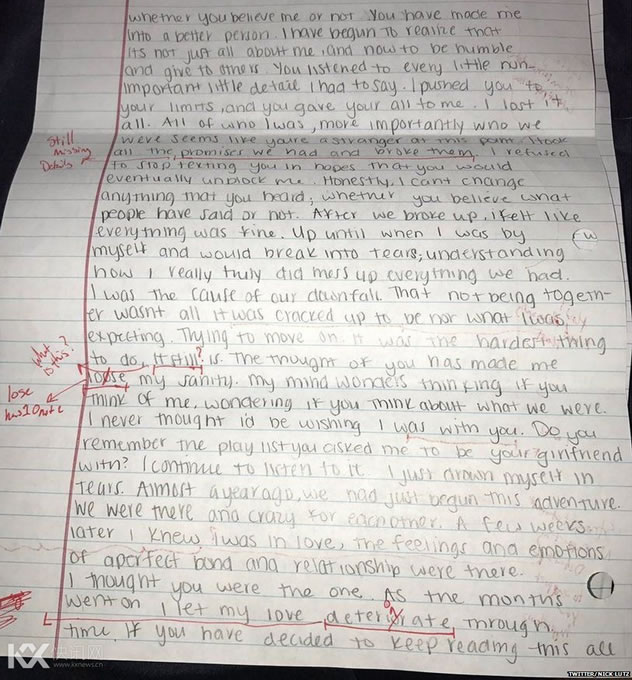 whether you believe me or not. You have made me
into a better person. I have begun to realize that
its not just all about me, and how to be humble
and give to others. You listened to every little nun-
important little detail I had to say. I pushed you to
your limits, and you gave your all to me. I lost it
all. All of who I was, more importantly who we
were seems like youre a stranger at this point. I took
all the promises we had and broke them. I refused
to stop texting you in hopes that you would
eventually unblock me. Honestly, I cant change
anything that you heard, whether you believe what
people have said or not. After we broke up, I felt like
everything was fine. Up until when I was by
myself and would break into tears, understanding
how I really truly did mess up everything we had.
I was the cause of our downfall. That not being togeth-
er wasnt all it was cracked up to be nor what I was
expecting. Trying to move on it was the hardest thing
to do, it still? is. The thought of you has made me
loose my sanity. My mind wonders thinking if you
think of me, wondering if you think about what we were.
I never thought i'd be wishing I was with you. Do you
remember the play list you asked me to be your girlfriend
with? I continue to listen to it. I just drown myself in
tears. Almost a year ago, we had just begun this adventure.
We were there and crazy for each other. A few weeks
later I knew i was in love, the feelings and emotions
of a perfect bond and relationship were there.
I thought you were the one. As the months
went on I let my love deterirate, through
time. If you have decided to keep reading this all
Still
missing
Details
What
is this?
lose
has 1 O not 2
o
KX
www.kxnews.cn
TWITTER/NICK LUTZ